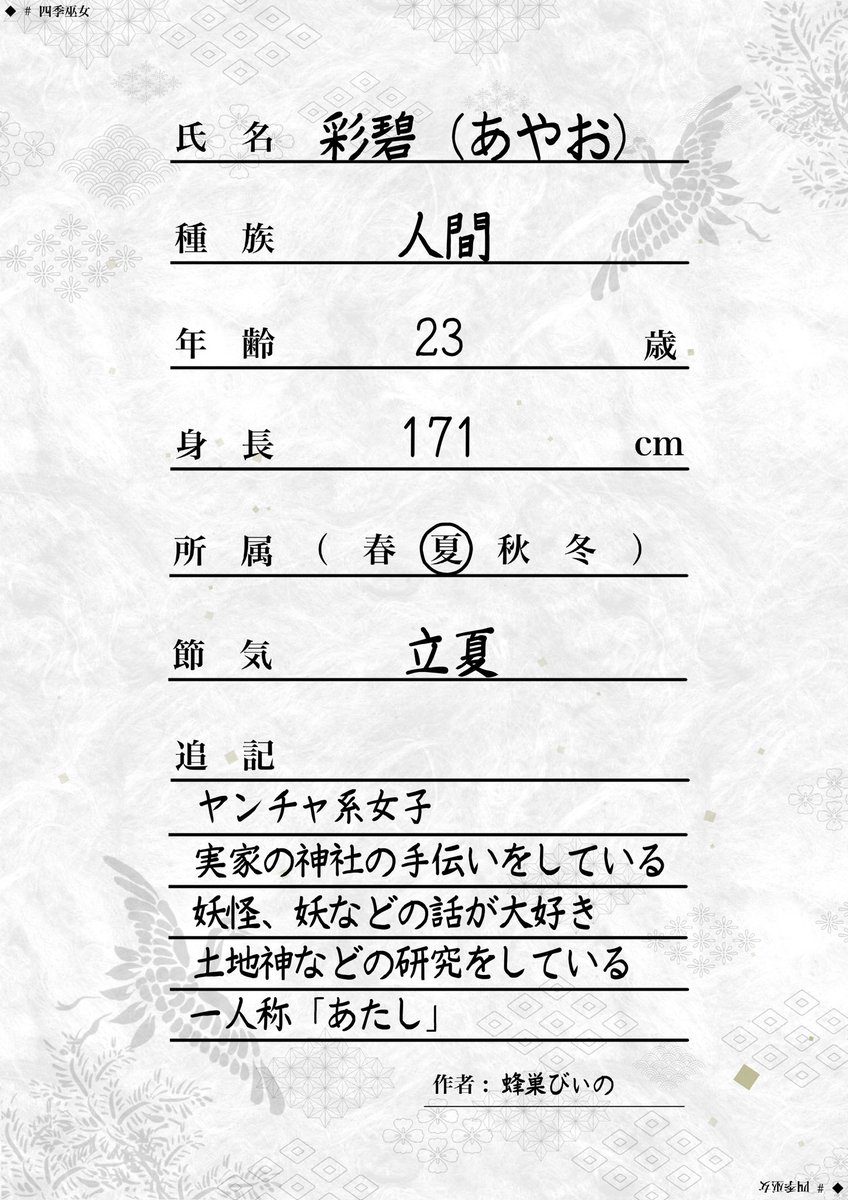 ◆ # 四季巫女
氏名 彩碧（あやお）
種族 人間
年齢 23 歳
身長 171 cm
所属（ 春 夏 秋 冬 ）
節気 立夏
追記
ヤンチャ系女子
実家の神社の手伝いをしている
妖怪、妖などの話が大好き
土地神などの研究をしている
一人称「あたし」
作者：蜂巣びぃの
◆ # 四季巫女